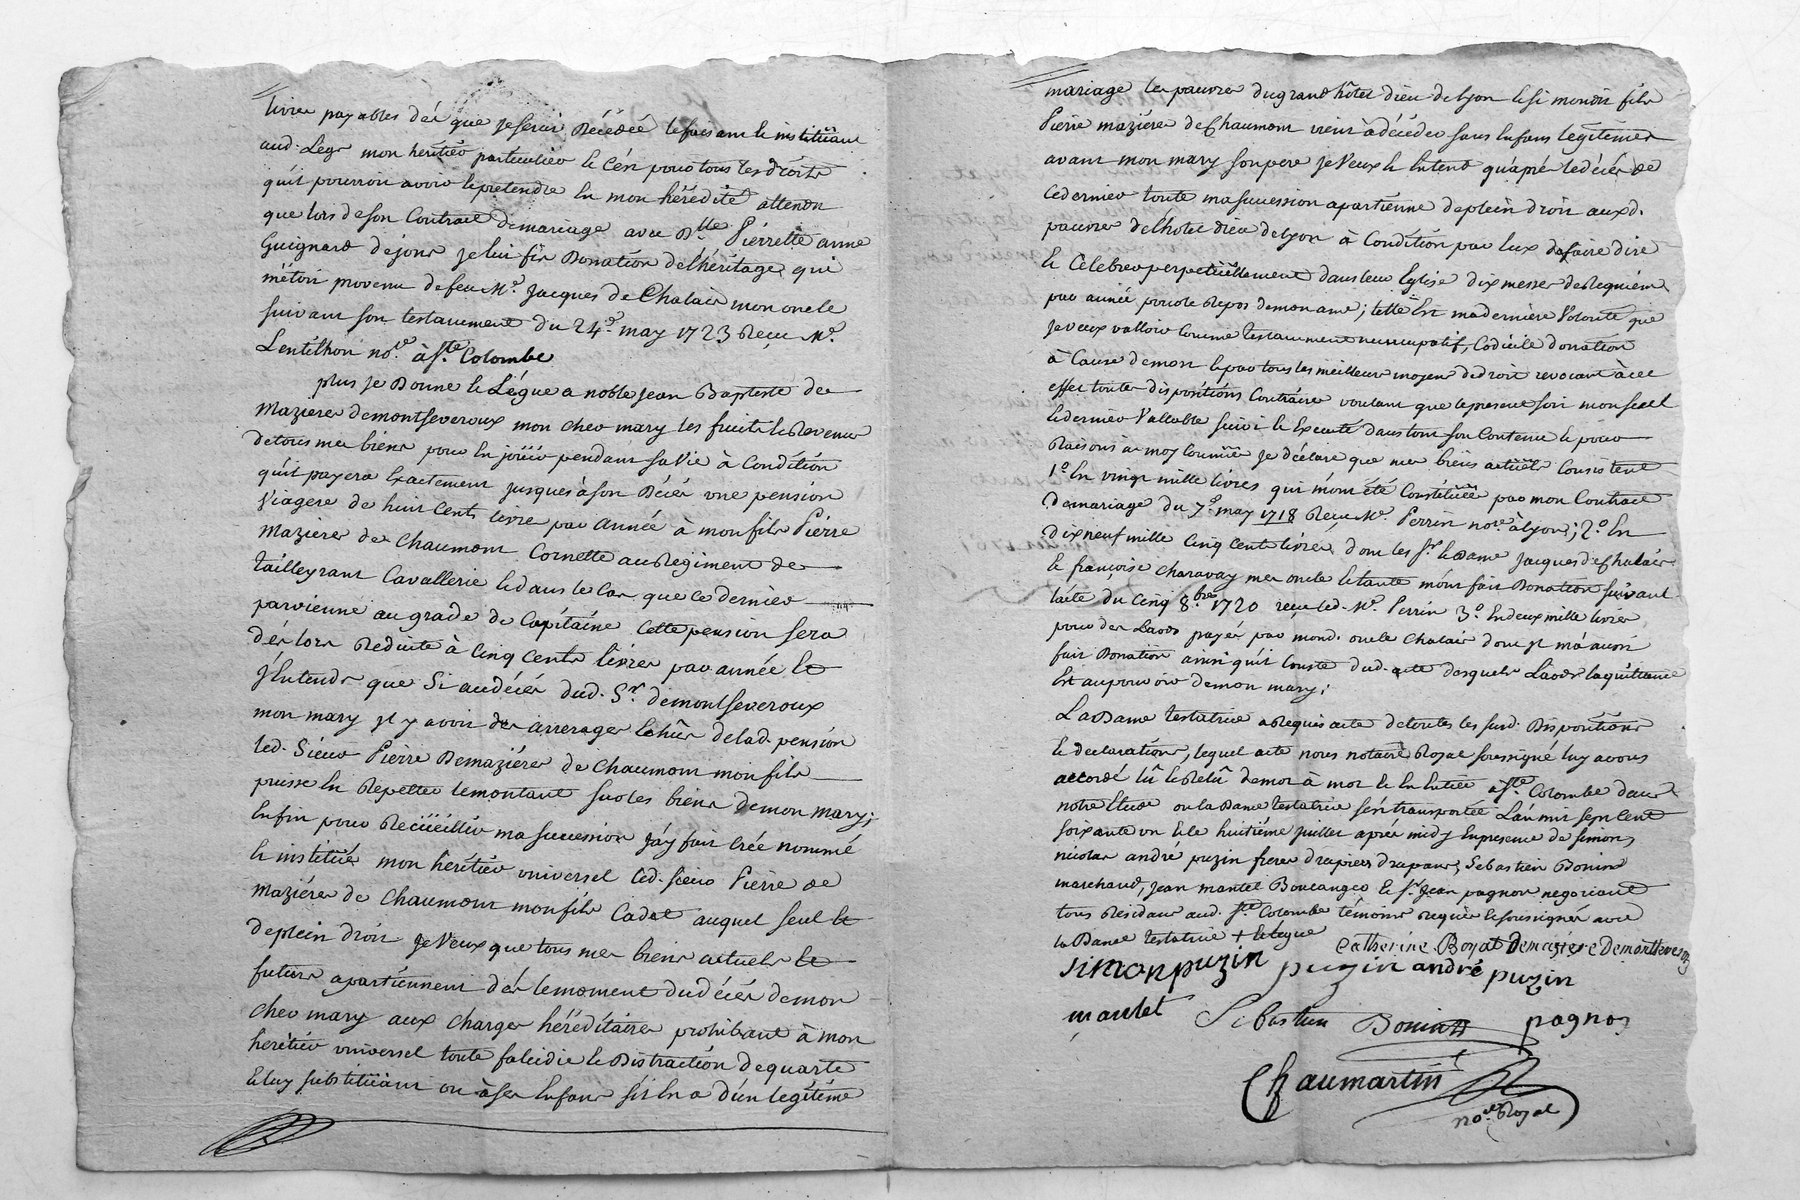 livres payables dés que je serai décédeé le faisant et instituant
aud. Legs mon heritier particulier et ce'n pour tous les droits
qu'il pourroit avoir et pretendre en mon hérédité attendu
que lors de son Contract de mariage avec Dlle Pierrette anne
Guignard dejons je lui fis Donation de l'héritage qui
m'étoit provenu de feu Mr. Jacques De Chalais mon oncle
suivant son testament du 24e. may 1723 Reçu Me.
Lentilhon nore. à Ste. Colombe
plus je Donne et Légue a noble jean Baptiste de
Mazieres demontseveroux mon cher mary les fruits et Revenus
de tous mes biens pour en joüir pendant sa vie à Condition
qu'il payera Exactement jusques à son Décés une pension
Viagere de huit Cents livres par année à mon fils Pierre
Mazieres de Chaumont Cornette au Regiment de
tailleyrant Cavallerie et dans le Cas que ce dernier
parvienne au grade de Capitaine Cette pension sera
dés lors Reduite à Cinq Cents livres par année et
j'Entends que Si au décés dud. Sr. demontseveroux
mon mary il y avoit des arrerages Echûs de lad. pension
led. Sieur Pierre Demaziéres de Chaumont mon fils
puisse en Repetter le montant sur les biens de mon mary;
Enfin pour Recüeillir ma succession j'ay fait créé nommé
et institué mon héritier universel led. sieur Pierre de
Maziéres de Chaumont mon fils Cadet auquel seul et
de plein droit je Veux que tous mes biens actuels et
futurs apartiennent dés le moment du décés de mon
cher mary aux charges héréditaires prohibant à mon
heritier universel toute falcidie et Distraction de quarte
Et luy substituant ou à ses Enfans s'il En a d'un legitime
mariage les pauvres du grand hôtel dieu de Lyon et si mondit fils
Pierre maziere de Chaumont vient à décéder sans Enfans legitimes
avant mon mary son pere je Veux et Entend qu'aprés le décés de
ce dernier toute ma succession apartienne de plein droit auxd.
pauvres de l'hotel dieu de Lyon à Condition par Eux de faire dire
et Célébrer perpetüellement dans leur Eglise dix messes de Requiem
par année pour le Repos de mon ame; telle Est ma derniére Volonté que
je veux valloir comme testament nuncupatif, Codicile donation
à Cause de mort et par tous les meilleurs moyens de droit revocant à cet
effet toutes dispositions Contraires voulant que le present soit mon seul
et dernier Vallable suivi et Executé dans tout son Contenu et pour
Raisons à moy Connües je déclare que mes biens actüels Consistent
1o. En vingt mille livres qui m'ont été Constituées par mon Contract
de mariage du 7e. may 1718 Reçu Me. Perrin nore à Lyon; 2o. En
dix neuf mille Cinq Cents livres dont les Sr. et Dame Jacques de Chalais
et françoise charavay mes oncle et tante m'ont fait Donation suivant
l'acte du Cinq 8bre. 1720 reçu led. Me. Perrin 3o. En deux mille livres
pour des Laods payés par mond. oncle Chalais dont il m'a aussi
fait Donation ainsi qu'il Conste dud. acte desquels Laods la quittance
Est au pouvoir de mon mary;
La Dame testatrice a Requis acte de toutes les susd. Dispositions
Et declarations, lequel acte nous notaire Royal soussigné luy avons
accordé lû et Relû de mot à mot et En Entier à Ste. Colombe dans
notre Etude ou la Dame testatrice s'est transportée L'an mil sept Cent
soixante un et le huitiéme juillet aprés midy En presence de simon,
nicolas andré puzin freres drapiers drapans, Sebastien Bonin
marchand, Jean mantet Boulanger et Sr. Jean pagnon negociant
tous Residant aud. Ste. Colombe témoins requis et soussignés avec
la Dame testatrice + et legue
Catherine Boyat Demaziere Demontseveroux
simon puzin puzin andré puzin
mantet Sebastien Bonin pagnon
Chaumartin
nore. Royal